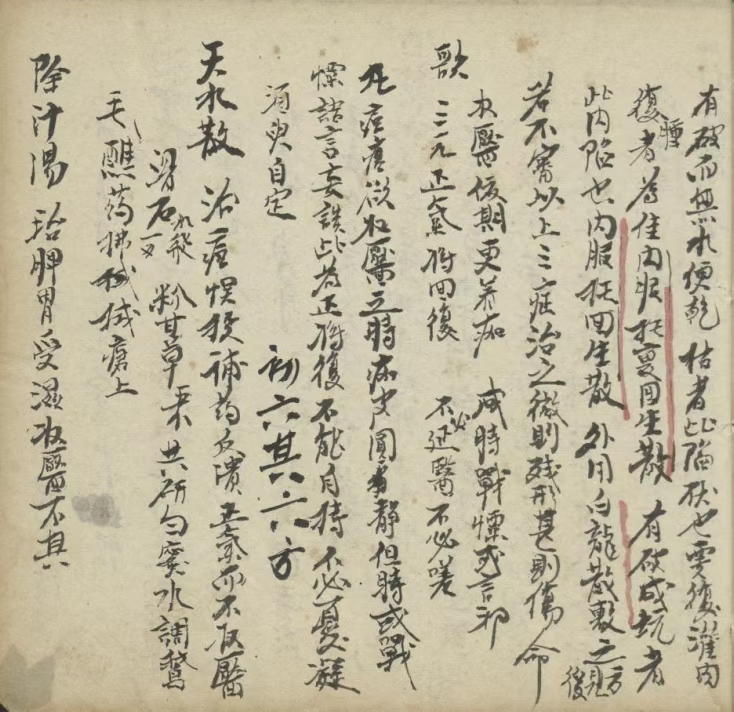 有破而無水便乾枯者此陷伏也要復灌肉
復腫者為佳內服托裏回生散 有破成坑者
此內陷也內服托回生散 外用白龍散敷之方見後
若不審以上三症治之微則殘形甚則傷命
收靨後期更若痂 戚時戰慄或言邪
歌 三元正氣將回復 不必延醫不必嗟
凡痘瘡欲收靨之時瘡皮圓者靜但時或戰
慄語言妄誕此為正將復不能自持不必憂疑
須臾自定 初六其六方
天水散 治痘悞投補藥反潰 正氣而不收靨
滑石水飛 粉甘草 共研勻蜜水調鵝
毛醮药拂 瘡上
除汁湯 治脾胃受濕收靨不其